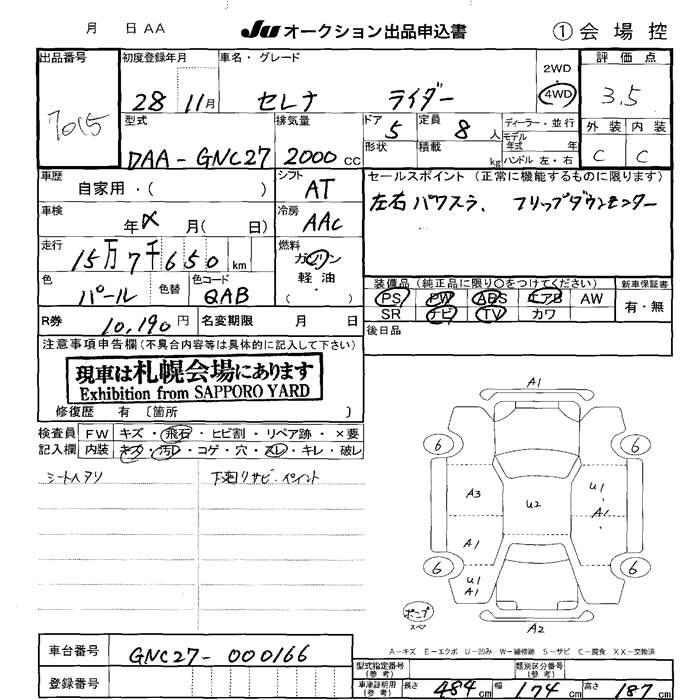 月 日 AA JU オークション出品申込書 ① 会場控
出品番号 初度登録年月 車名・グレード 2WD 評価点
7015 28 11月 セレナ ライダー 4WD 3.5
型式 排気量 ドア 5 定員 8 人 ディーラー・並行 外装 内装
DAA-GNC27 2000 cc 形状 積載 kg モデル年式 年 ハンドル 左・右 C C
車歴 自家用・( ) シフト AT セールスポイント (正常に機能するものに限ります)
車検 年 月( 日) 冷房 AAC 左右パワスラ、 フリップダウンモニター
走行 15万7千650 km 燃料 ガソリン 軽油 ( )
色 パール 色替 色コード QAB 装備品(純正品に限り○をつけてください) 新車保証書
PS PW ABS エアB AW 有・無
R券 10,190円 名変期限 月 日 SR ナビ TV カワ
注意事項申告欄(不具合内容等は具体的に記入して下さい) 後日品
現車は札幌会場にあります
Exhibition from SAPPORO YARD
修復歴 有 〔箇所 〕
検査員 FW キズ・飛石・ヒビ割・リペア跡・×要
記入欄 内装 キズ・汚レ・コゲ・穴・スレ・キレ・破レ
シートヘタリ 下廻リサビ・ペイント
A1
6 6
A3 U2 U1
A1 A1
6 6
U1
A1
A2
A-キズ E-エクボ U-凹み W-補修跡 S-サビ C-腐食 XX-交換済
車台番号 GNC27-000166 型式指定番号(参考) 類別区分番号(参考)
登録番号 車庫証明用(参考) 長さ 484 cm 幅 174 cm 高さ 187 cm